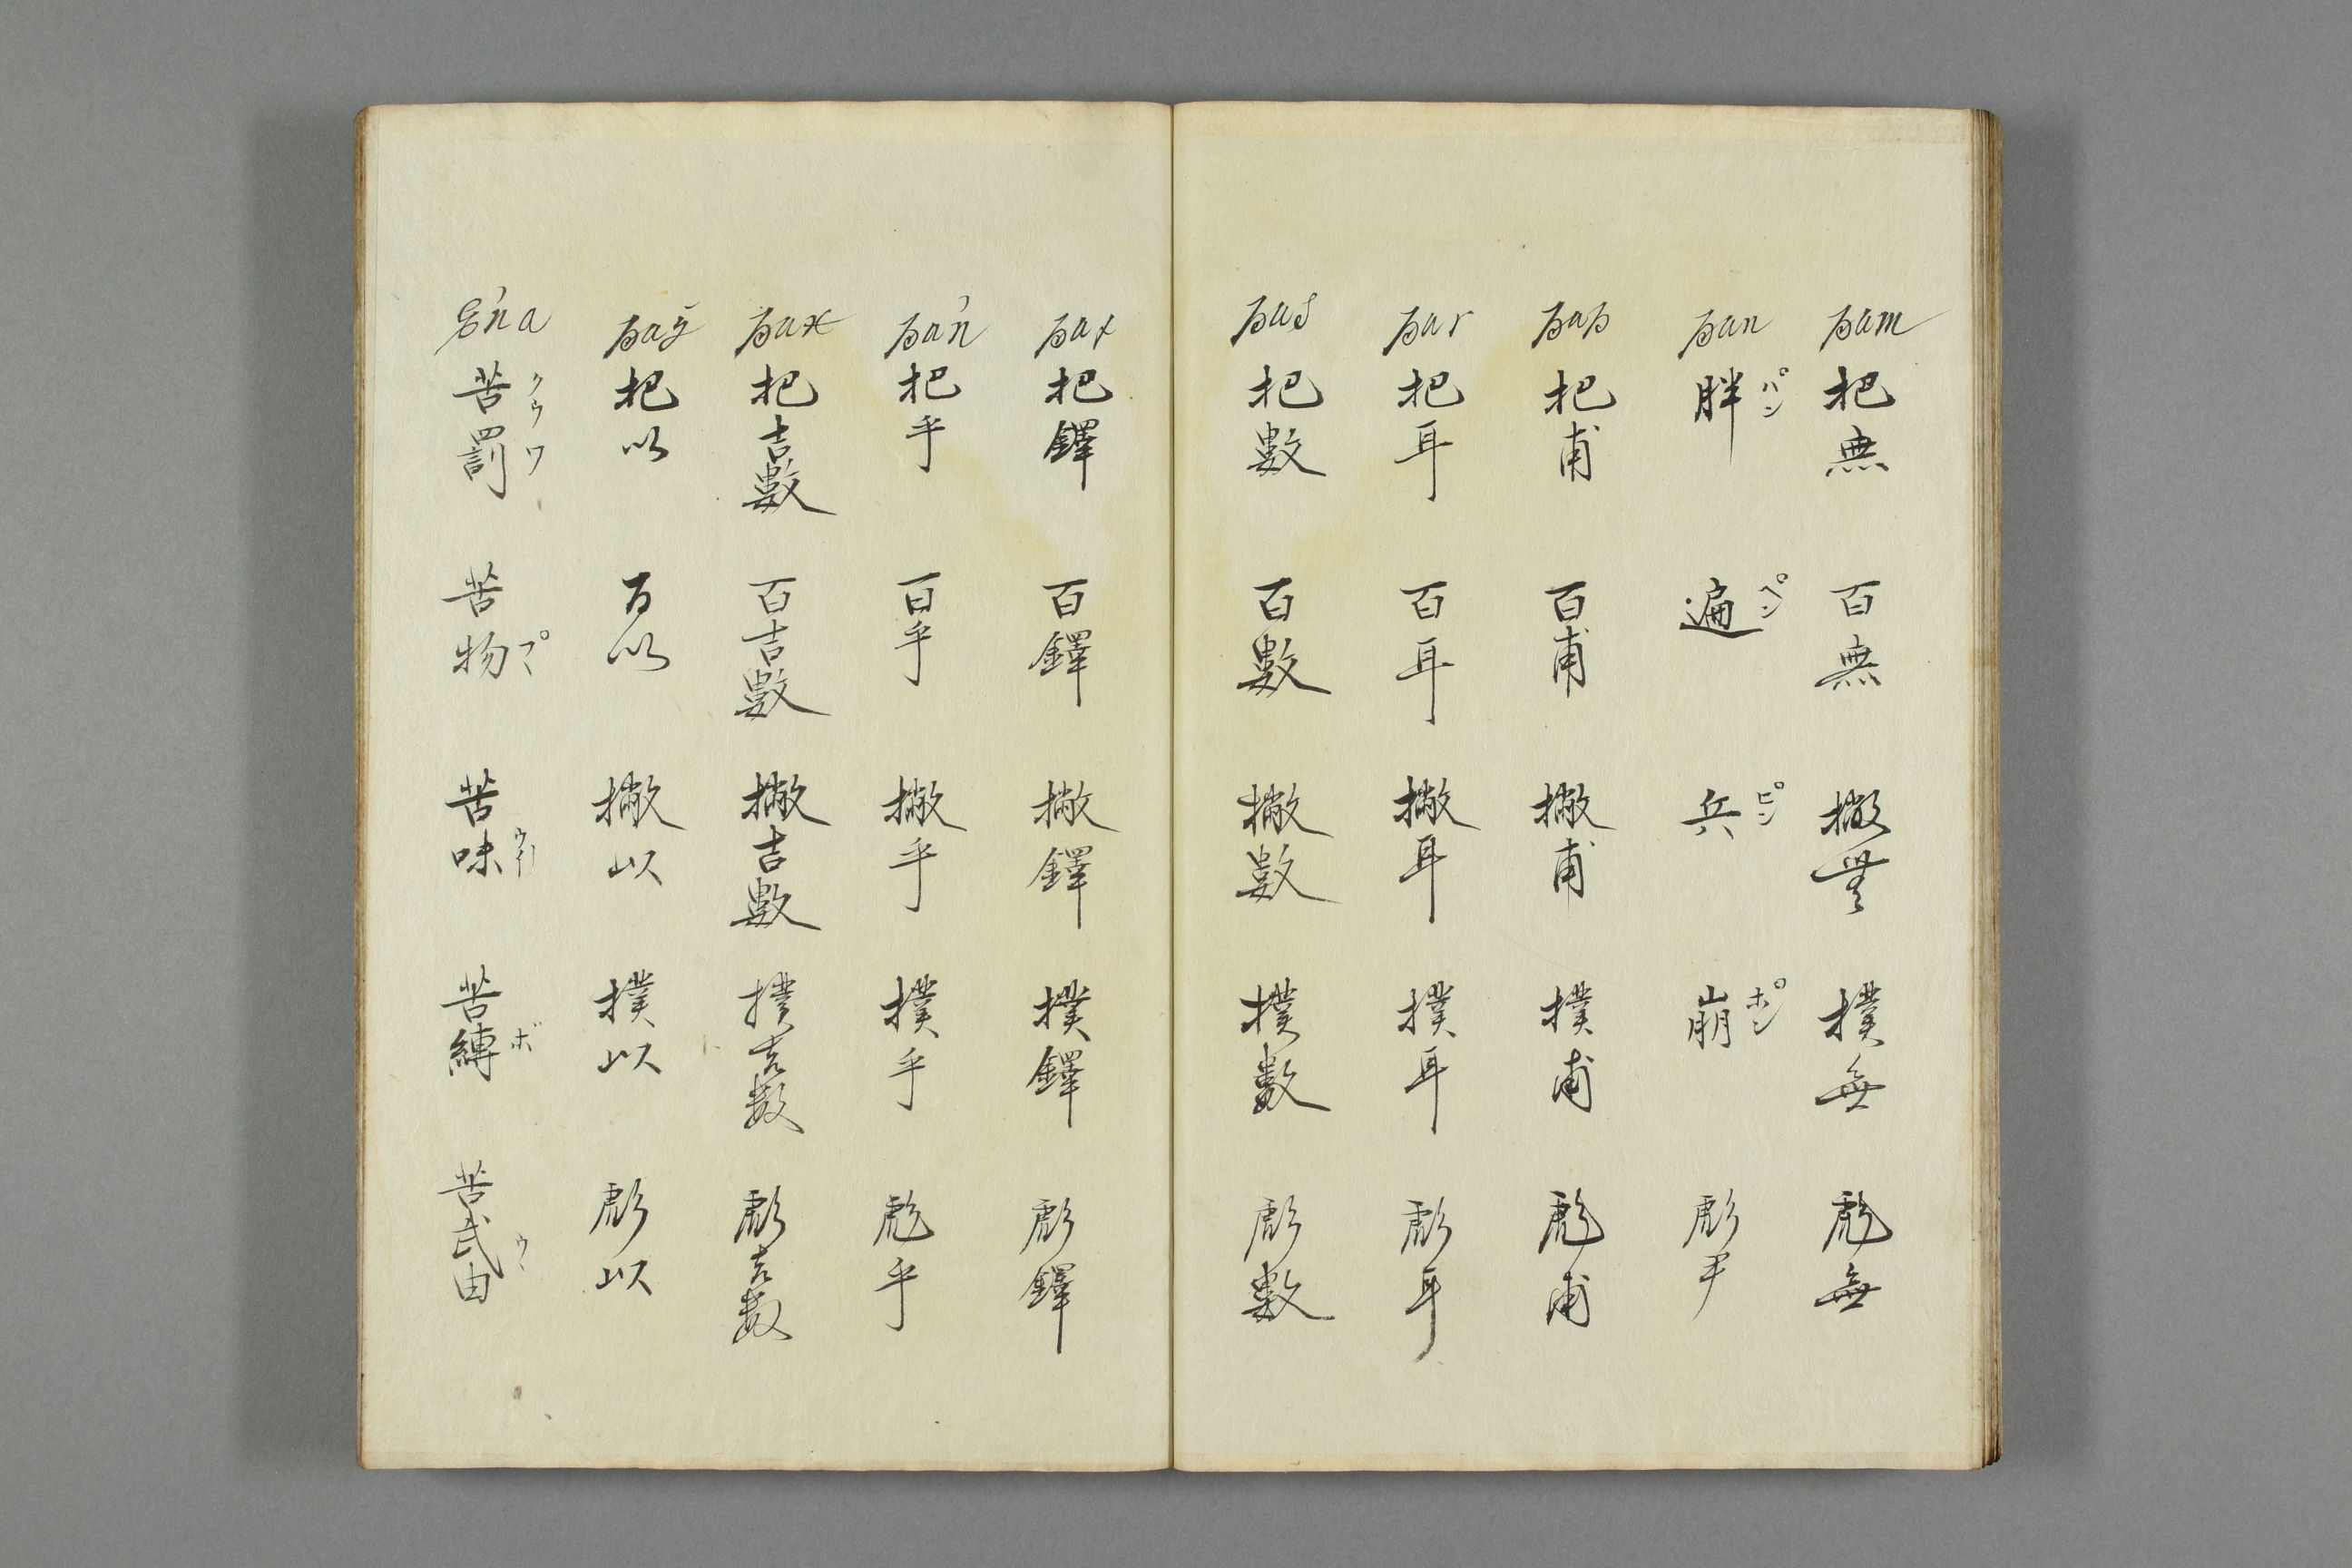 bam 把無 百無 撇無 撲無 彪無
ban 胖パン 遍ペン 兵ピン 崩ポン 彪乎
bab 把甫 百甫 撇甫 撲甫 彪甫
bar 把耳 百耳 撇耳 撲耳 彪耳
bas 把數 百數 撇數 撲數 彪數
把鐸 百鐸 撇鐸 撲鐸 彪鐸
bań 把乎 百乎 撇乎 撲乎 彪乎
bax 把吉數 百吉數 撇吉數 撲吉数 彪吉数
把以 百以 撇以 撲以 彪以
苦罰クウワ 苦物 苦味 苦縛ボ 苦武由